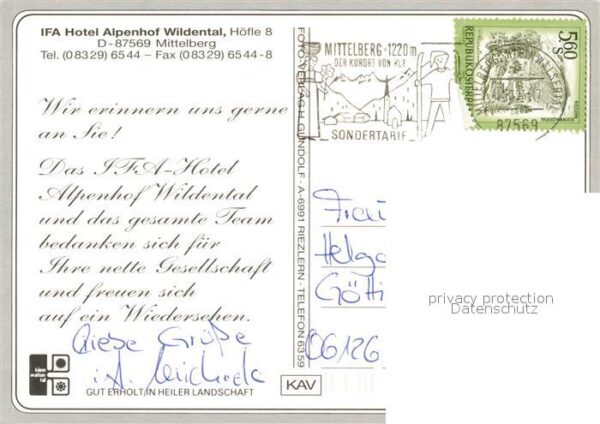 IFA Hotel Alpenhof Wildental, Höfle 8
D-87569 Mittelberg
Tel. (08329) 6544 – Fax (08329) 6544-8
Wir erinnern uns gerne
an Sie!
Das IFA-Hotel
Alpenhof Wildental
und das gesamte Team
bedanken sich für
Ihre nette Gesellschaft
und freuen sich
auf ein Wiedersehen.
Liebe Grüße
i.A.
GUT ERHOLT IN HEILER LANDSCHAFT
FOTO-VERLAG H. GUNDOLF · A-6991 RIEZLERN · TELEFON 6359
KAV
MITTELBERG-1220m
DER KURORT VON RUF
SONDERTARIF
5.60
S
REPUBLIK ÖSTERREICH
87569
Frau
Helga
Götti
06126
privacy protection
Datenschutz